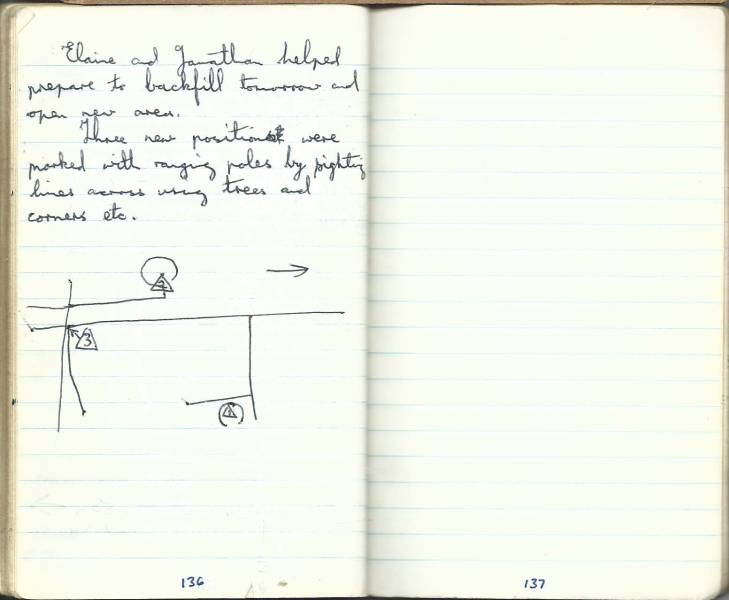 Elaine and Jonathan helped
prepare to backfill tomorrow and
open new area.
Three new positions were
marked with ranging poles by sighting
lines across using trees and
corners etc.
2
3
1
136
137